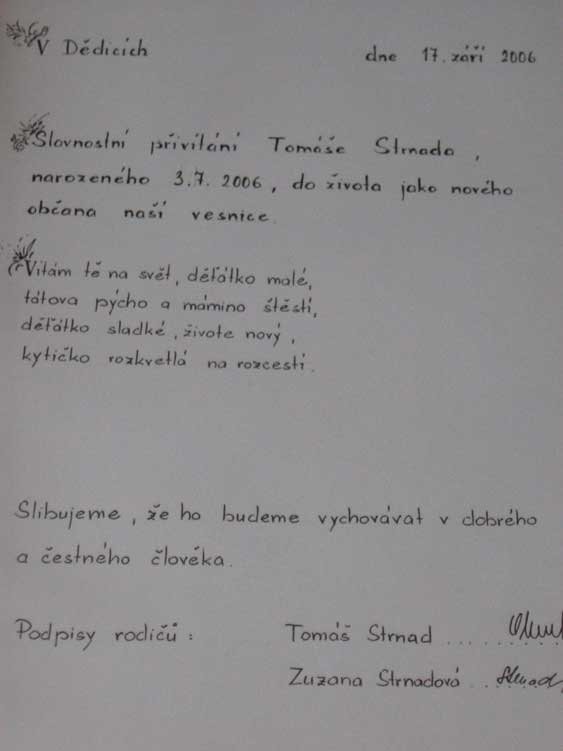 V Dědicích dne 17. září 2006
Slavnostní přivítání Tomáše Strnada,
narozeného 3.7. 2006, do života jako nového
občana naší vesnice.
Vítám tě na svět, děťátko malé,
tátova pýcho a mámino štěstí,
děťátko sladké, živote nový,
kytičko rozkvetlá na rozcestí.
Slibujeme, že ho budeme vychovávat v dobrého
a čestného člověka.
Podpisy rodičů: Tomáš Strnad ......
Zuzana Strnadová ..... Strnad